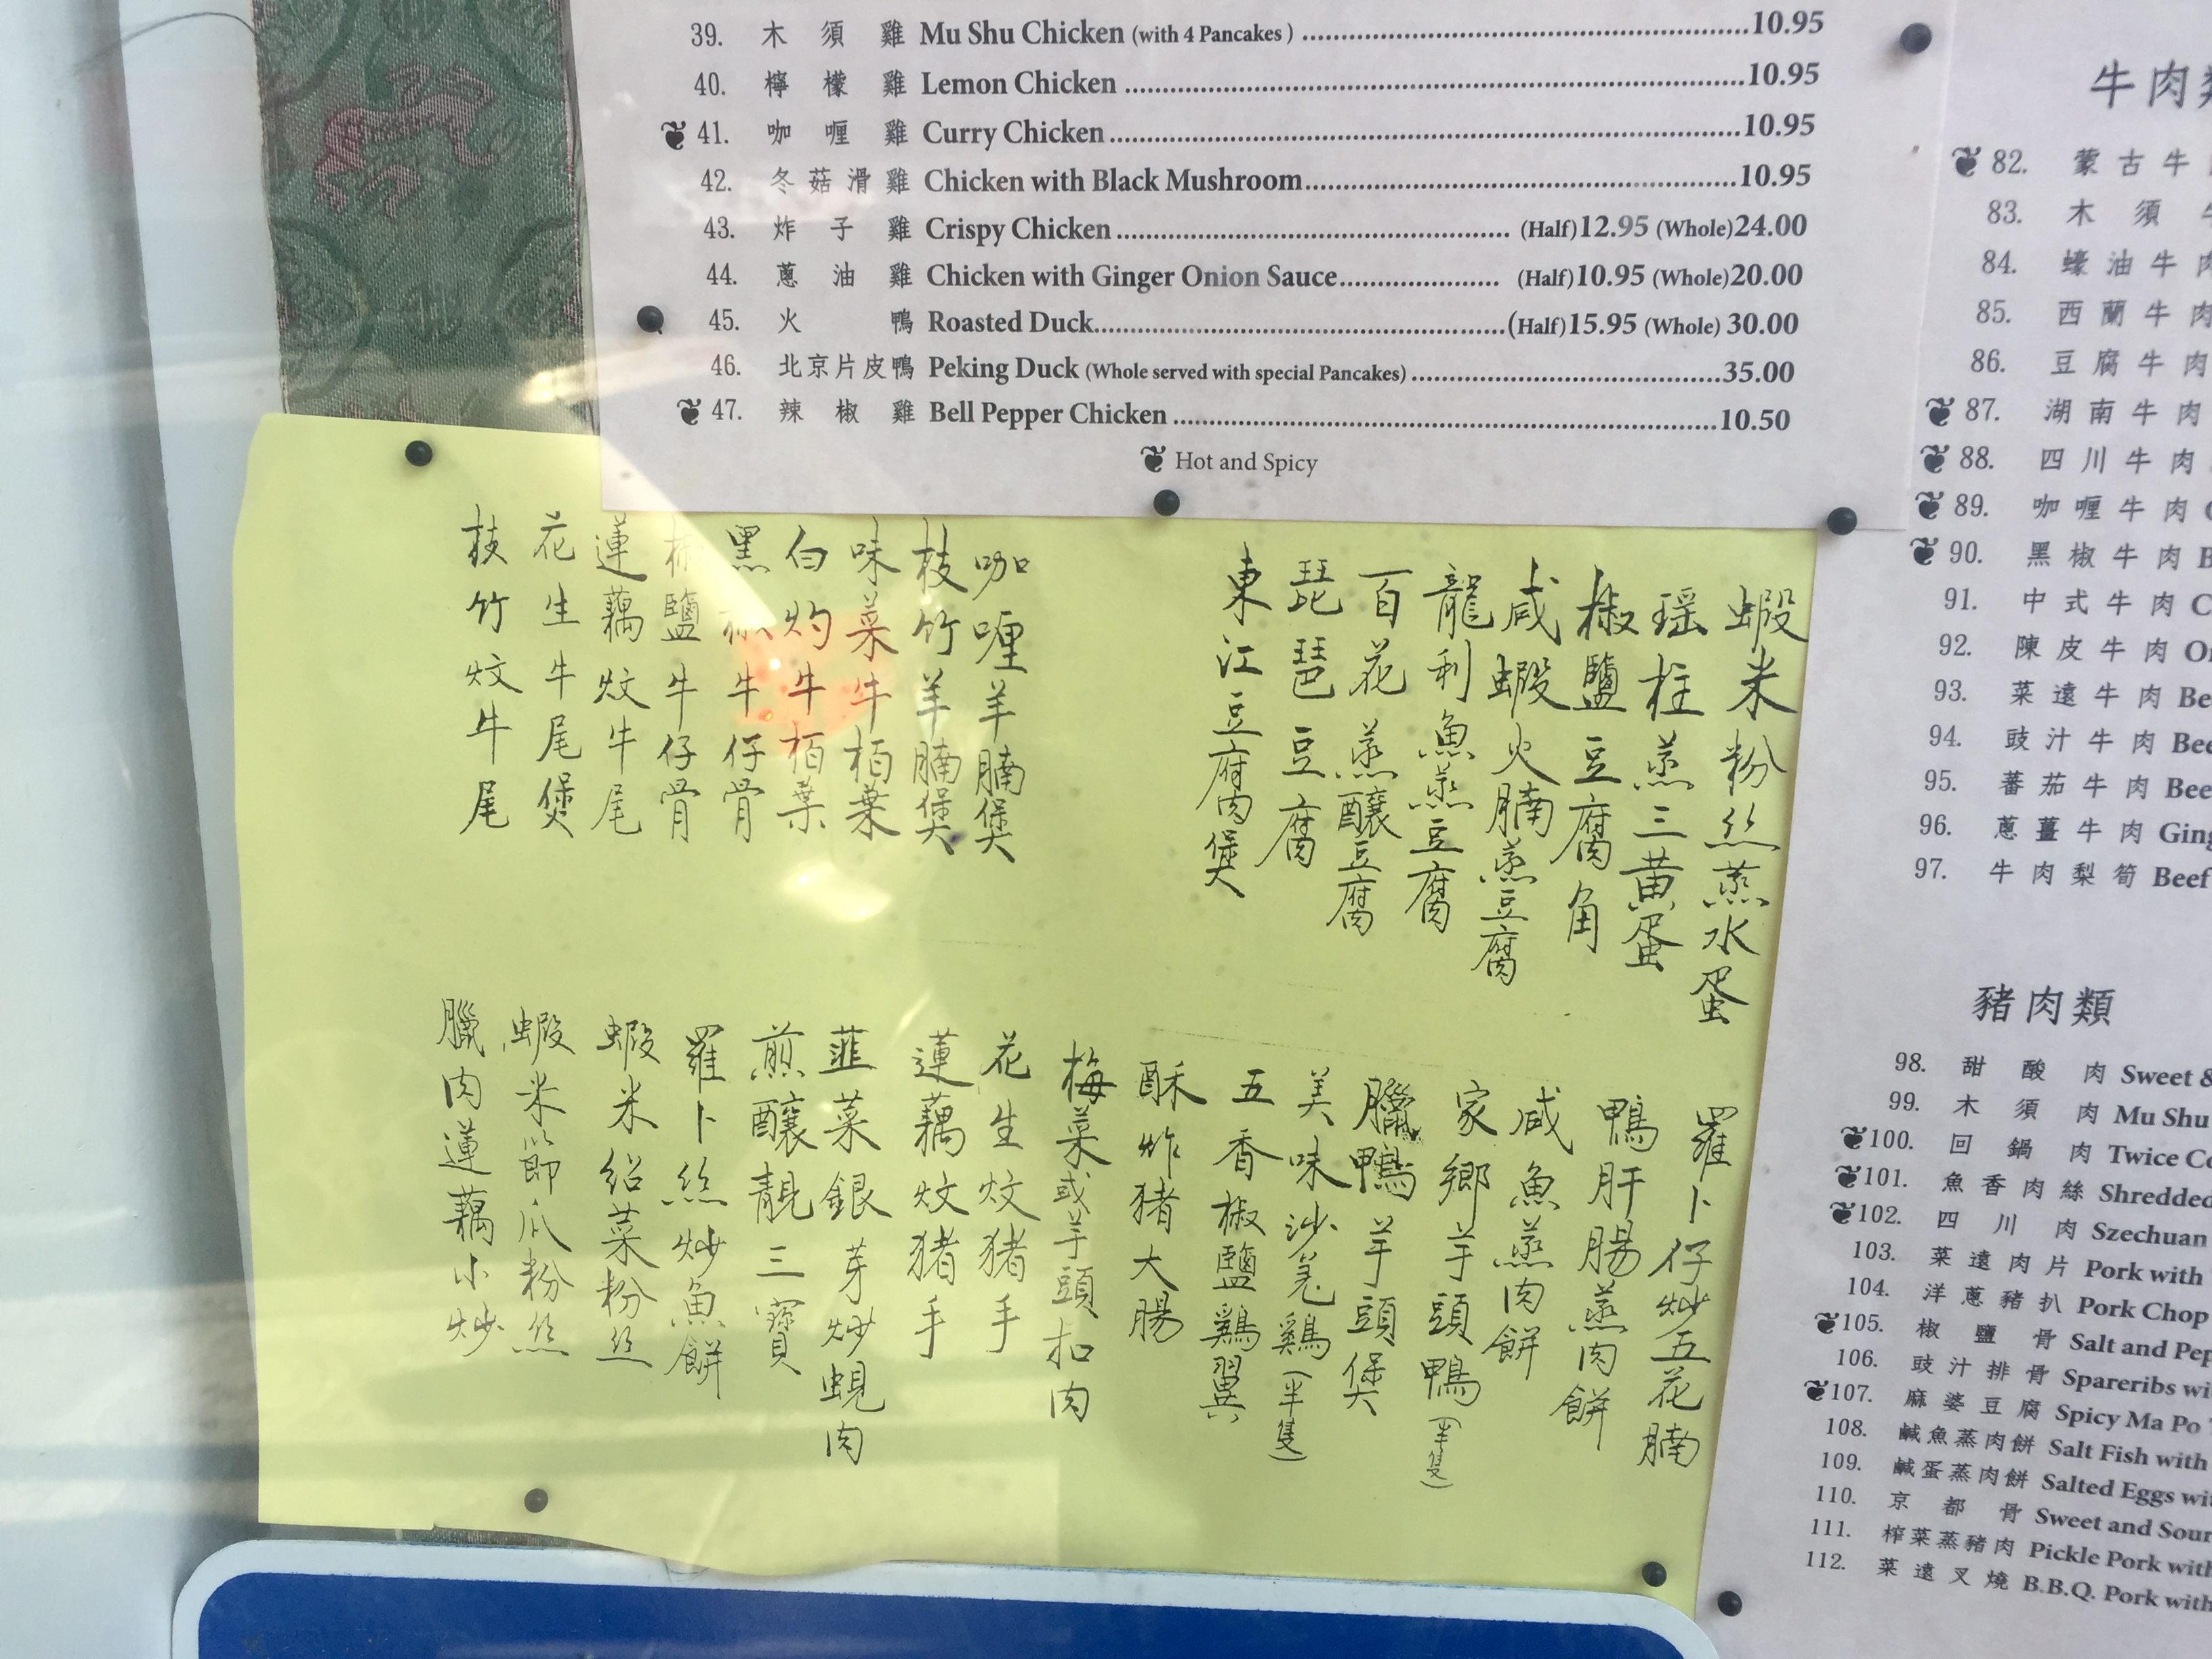 39. 木須雞 Mu Shu Chicken (with 4 Pancakes) 10.95
40. 檸檬雞 Lemon Chicken 10.95
41. 咖喱雞 Curry Chicken 10.95
42. 冬菇滑雞 Chicken with Black Mushroom 10.95
43. 炸子雞 Crispy Chicken (Half)12.95 (Whole)24.00
44. 蔥油雞 Chicken with Ginger Onion Sauce (Half)10.95 (Whole)20.00
45. 火鴨 Roasted Duck (Half)15.95 (Whole) 30.00
46. 北京片皮鴨 Peking Duck (Whole served with special Pancakes) 35.00
47. 辣椒雞 Bell Pepper Chicken 10.50
Hot and Spicy
蝦米粉絲蒸水蛋
瑶柱蒸三黄蛋
椒鹽豆腐角
咸蝦火腩蒸豆腐
龍利魚蒸豆腐
百花蒸釀豆腐
琵琶豆腐
東江豆腐肉煲
咖喱羊腩煲
枝竹羊腩煲
味菜牛栢葉
白灼牛栢葉
黑椒牛仔骨
椒鹽牛仔骨
蓮藕炆牛尾
花生牛尾煲
枝竹炆牛尾
羅卜仔炒五花腩
鴨肝腸蒸肉餅
咸魚蒸肉餅
家鄉芋頭鴨(半隻)
臘鴨芋頭煲
美味沙羌鷄(半隻)
五香椒鹽鷄翼
酥炸猪大腸
梅菜或芋頭扣肉
花生炆猪手
蓮藕炆猪手
韮菜銀芽炒蜆肉
煎釀靚三寶
羅卜絲炒魚餅
蝦米紹菜粉丝
蝦米節瓜粉丝
臘肉蓮藕小炒
牛肉
82. 蒙古牛
83. 木須
84. 蠔油牛肉
85. 西蘭牛肉
86. 豆腐牛肉
87. 湖南牛肉
88. 四川牛肉
89. 咖喱牛肉
90. 黑椒牛肉 B
91. 中式牛肉 C
92. 陳皮牛肉 O
93. 菜遠牛肉 Be
94. 豉汁牛肉 Bee
95. 蕃茄牛肉 Bee
96. 蔥薑牛肉 Ging
97. 牛肉梨筍 Beef
豬肉類
98. 甜酸肉 Sweet &
99. 木須肉 Mu Shu
100. 回鍋肉 Twice Co
101. 魚香肉絲 Shredded
102. 四川肉 Szechuan
103. 菜遠肉片 Pork with
104. 洋蔥豬扒 Pork Chop
105. 椒鹽骨 Salt and Pep
106. 豉汁排骨 Spareribs wi
107. 麻婆豆腐 Spicy Ma Po
108. 鹹魚蒸肉餅 Salt Fish with
109. 鹹蛋蒸肉餅 Salted Eggs wit
110. 京都骨 Sweet and Sour
111. 榨菜蒸豬肉 Pickle Pork with
112. 菜遠叉燒 B.B.Q. Pork with